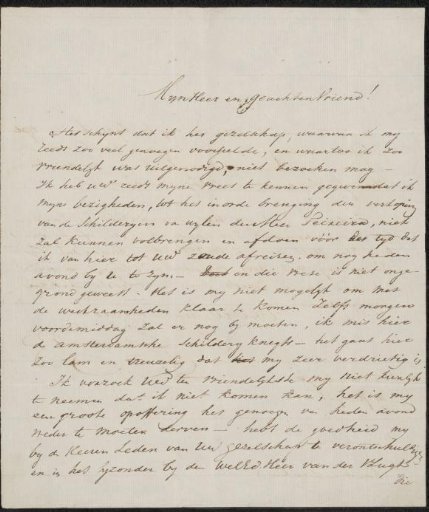 Mijn Heer en geachten Vriend!
Het schijnt dat ik het gezelschap, waarvan ik mij
reeds zoo veel genoegen voorstelde, en waartoe ik zoo
vriendelyk was uitgenodigd, niet bezoeken mag —
Ik heb uw reeds myne vrees te kennen gegeven dat ik
myne bezigheden, tot het in orde brenging der
van de Schilderyen van wylen den Heer Teixeira, niet
zal kunnen volbrengen en afdoen vóór den tyd dat
ik van hier tot uw zoude afreizen om nog heden
avond by u te zyn — en die vrees is niet onge-
grond geweest. Het is my niet mogelyk om met
de werkzaamheden klaar te komen zelfs morgen
voordemiddag zal er nog by moeten, ik mis hier
de amsterdamsche Schildery knegts — het gaat hier
zoo lam en treuzelig dat het my zeer verdrietig is
Ik verzoek Uwd ten vriendelykste my niet kwalyk
te neemen dat ik niet komen kan, het is my
een groote opoffering het genoegen van heden avond
neder te moeten derven — heb de goedheid my
by de Heeren Leden van Uw gezelschap te verontschuldigen
en in het byzonder by de Weled Heer van der
die